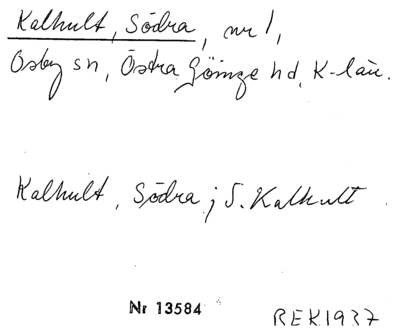 Kalhult, Södra, nr 1,
Osby sn, Östra Göinge hd, K-län.
Kalhult, Södra; S. Kalhult
Nr 13584
REK1937